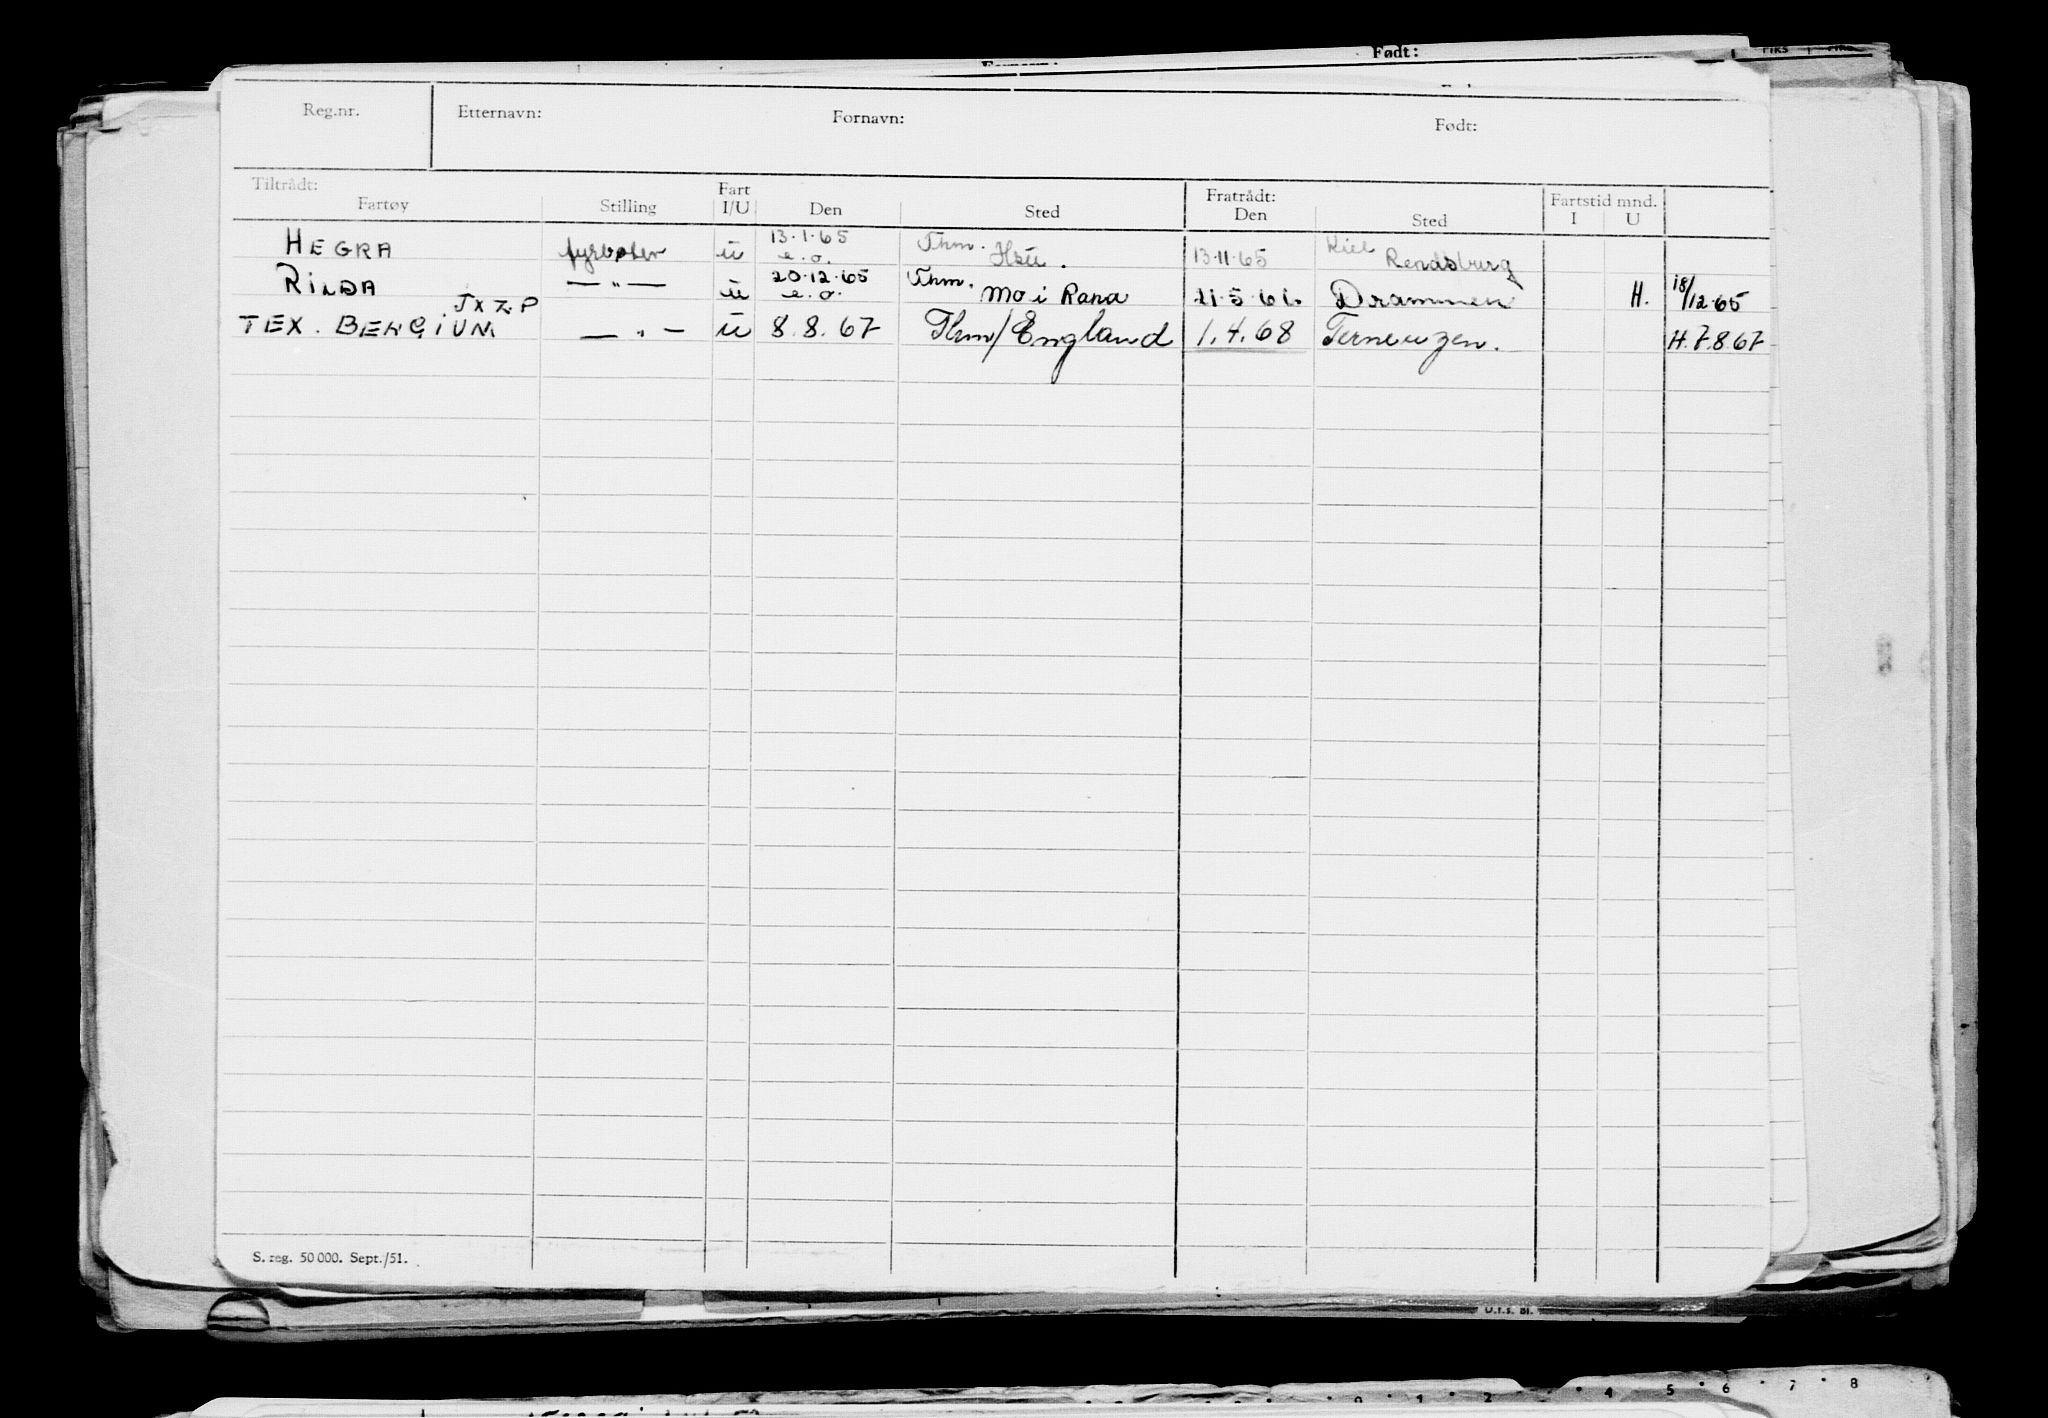 Født:
Reg.nr. Etternavn: Fornavn: Født:
Tiltrådt: Fart Fratrådt: Fartstid mnd.
Fartøy Stilling I/U Den Sted Den Sted I U
HEGRA fyrbøter u 13.1.65 e.o. Thm. 13.11.65 Kiel Rendsburg
RILDA — " — u 20.12.65 e.o. Thm. Mo i Rana Drammen H. 18/12.65
JXZP
TEX. BERGIUM — " — u 8.8.67 Thm/England 1.4.68 Terneuzen. H.7.867
S. reg. 50 000. Sept./51.